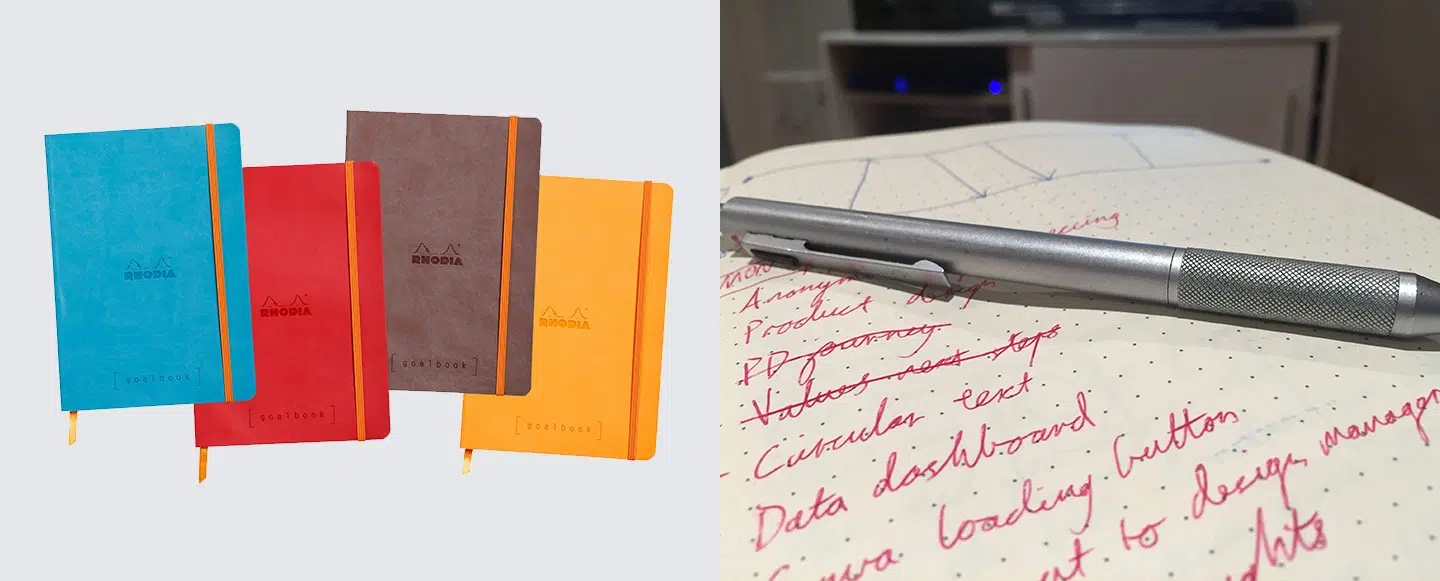 RHODIA
[goalbook]
RHODIA
[goalbook]
RHODIA
[goalbook]
RHODIA
[goalbook]
Product design
PD journey
Values next steps
- Circular text
Data dashboard
loading button
to design manager